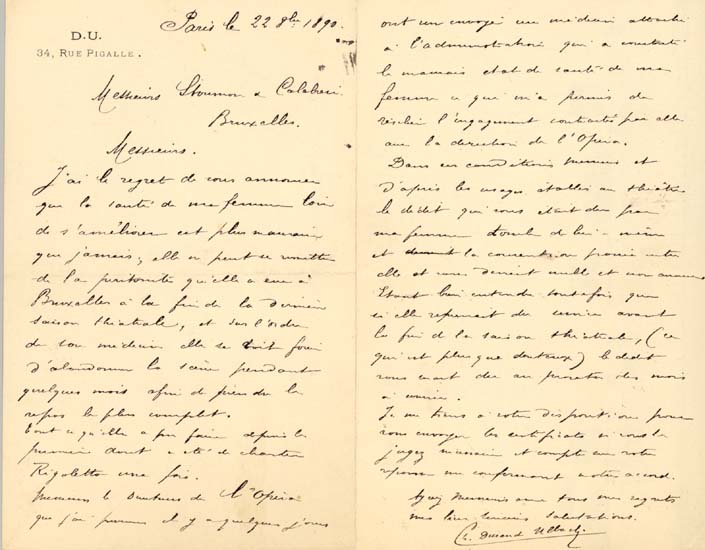 D.U.
34, RUE PIGALLE.
Paris le 22 8bre 1890.
Messieurs Stoumon & Calabresi
Bruxelles.
Messieurs.
J'ai le regret de vous annoncer
que la santé de ma femme loin
de s'améliorer est plus mauvaise
que jamais, elle ne peut se remettre
de la péritonite qu'elle a eue à
Bruxelles à la fin de la dernière
saison théâtrale, et sur l'ordre
de son médecin elle se voit forcée
d'abandonner la scène pendant
quelques mois afin de prendre le
repos le plus complet.
Tout ce qu'elle a pu faire depuis le
premier août a été de chanter
Rigoletto une fois.
Messieurs les Directeurs de l'Opéra
que j'ai prévenus il y a quelques jours
ont envoyé un médecin attaché
à l'administration qui a constaté
le mauvais état de santé de ma
femme ce qui m'a permis de
résilier l'engagement contracté par elle
avec la direction de l'Opéra.
Dans ces conditions Messieurs et
d'après les usages établis au théâtre
le dédit qui vous était dû par
ma femme tombe de lui-même
et la convention passée entre
elle et vous devient nulle et non avenue
Etant bien entendu toutefois que
si elle reprenait du service avant
la fin de la saison théâtrale, (ce
qui est plus que douteux) le dédit
vous serait dû au prorata des mois
à courir.
Je me tiens à votre disposition pour
vous envoyer les certificats si vous le
jugez nécessaire et compte sur votre
réponse me confirmant votre accord.
Agréez Messieurs avec tous mes regrets
mes bien sincères salutations.
Ch. Durand Ulbach